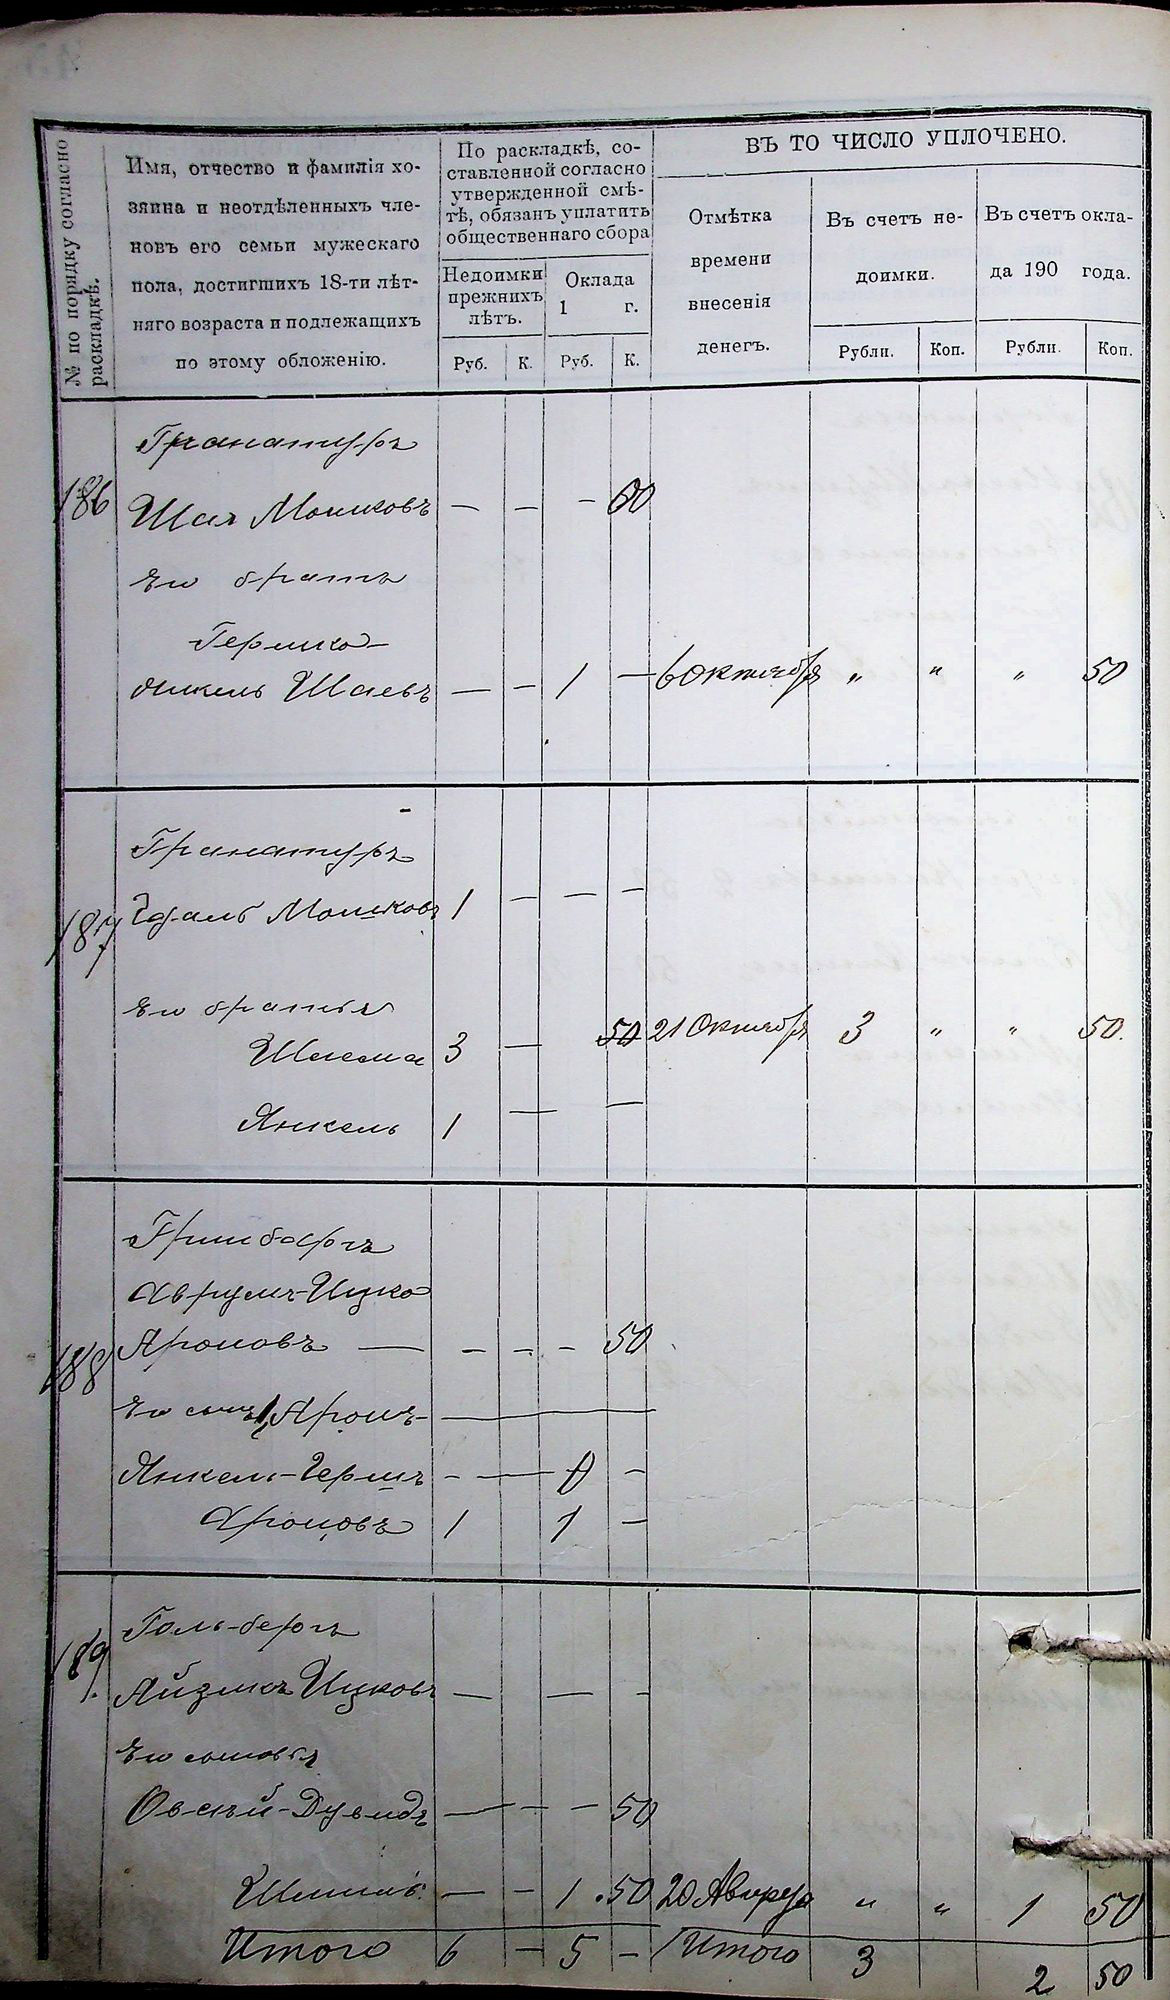 № по порядку согласно раскладкѣ.
Имя, отчество и фамилія хо-
зяина и неотдѣленныхъ чле-
новъ его семьи мужескаго
пола, достигшихъ 18-ти лѣт-
няго возраста и подлежащихъ
по этому обложенію.
По раскладкѣ, со-
ставленной согласно
утвержденной смѣ-
тѣ, обязанъ уплатить
общественнаго сбора
Недоимки
прежнихъ
лѣтъ.
Оклада
1 г.
Руб. К. Руб. К.
ВЪ ТО ЧИСЛО УПЛОЧЕНО.
Отмѣтка
времени
внесенія
денегъ.
Въ счетъ не-
доимки.
Въ счетъ окла-
да 190 года.
Рубли. Коп. Рубли. Коп.
Гранатуръ
186 Шая Мошковъ — — —
Его братъ
Гершко-
Янкель Шаевъ — — 1 — 6 Октября „ „ „ 50
Гранатуръ
187 Мошковъ 1 — — —
Его братья
Шлема 3 — 50 21 Октября 3 „ „ 50.
Янкель 1 — —
Гринбергъ
Аврумъ-Ицко
188 Ароновъ — — — — 50
Его сынъ Аронъ-
Янкель-Гершъ - — —
Ароновъ 1 1 —
Гольбергъ
189. Айзикъ Ицковъ — — -
Его сыновья
Овсѣй-Дувидъ — - — 50
— - 1 .50 20 Августа „ „ 1 50
Итого 6 — 5 — Итого 3 2 50